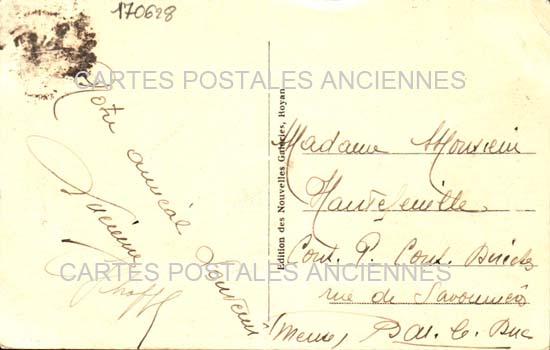 170628
CARTES POSTALES ANCIENNES
Notre amical Souvenir
Lucienne
Edition des Nouvelles Galeries, Royan
Madame Monsieur
Hautefeuille
Cont. P. Cont. Directes
rue de Savonnières
(Meuse) Bar. le. Duc
CARTES POSTALES ANCIENNES